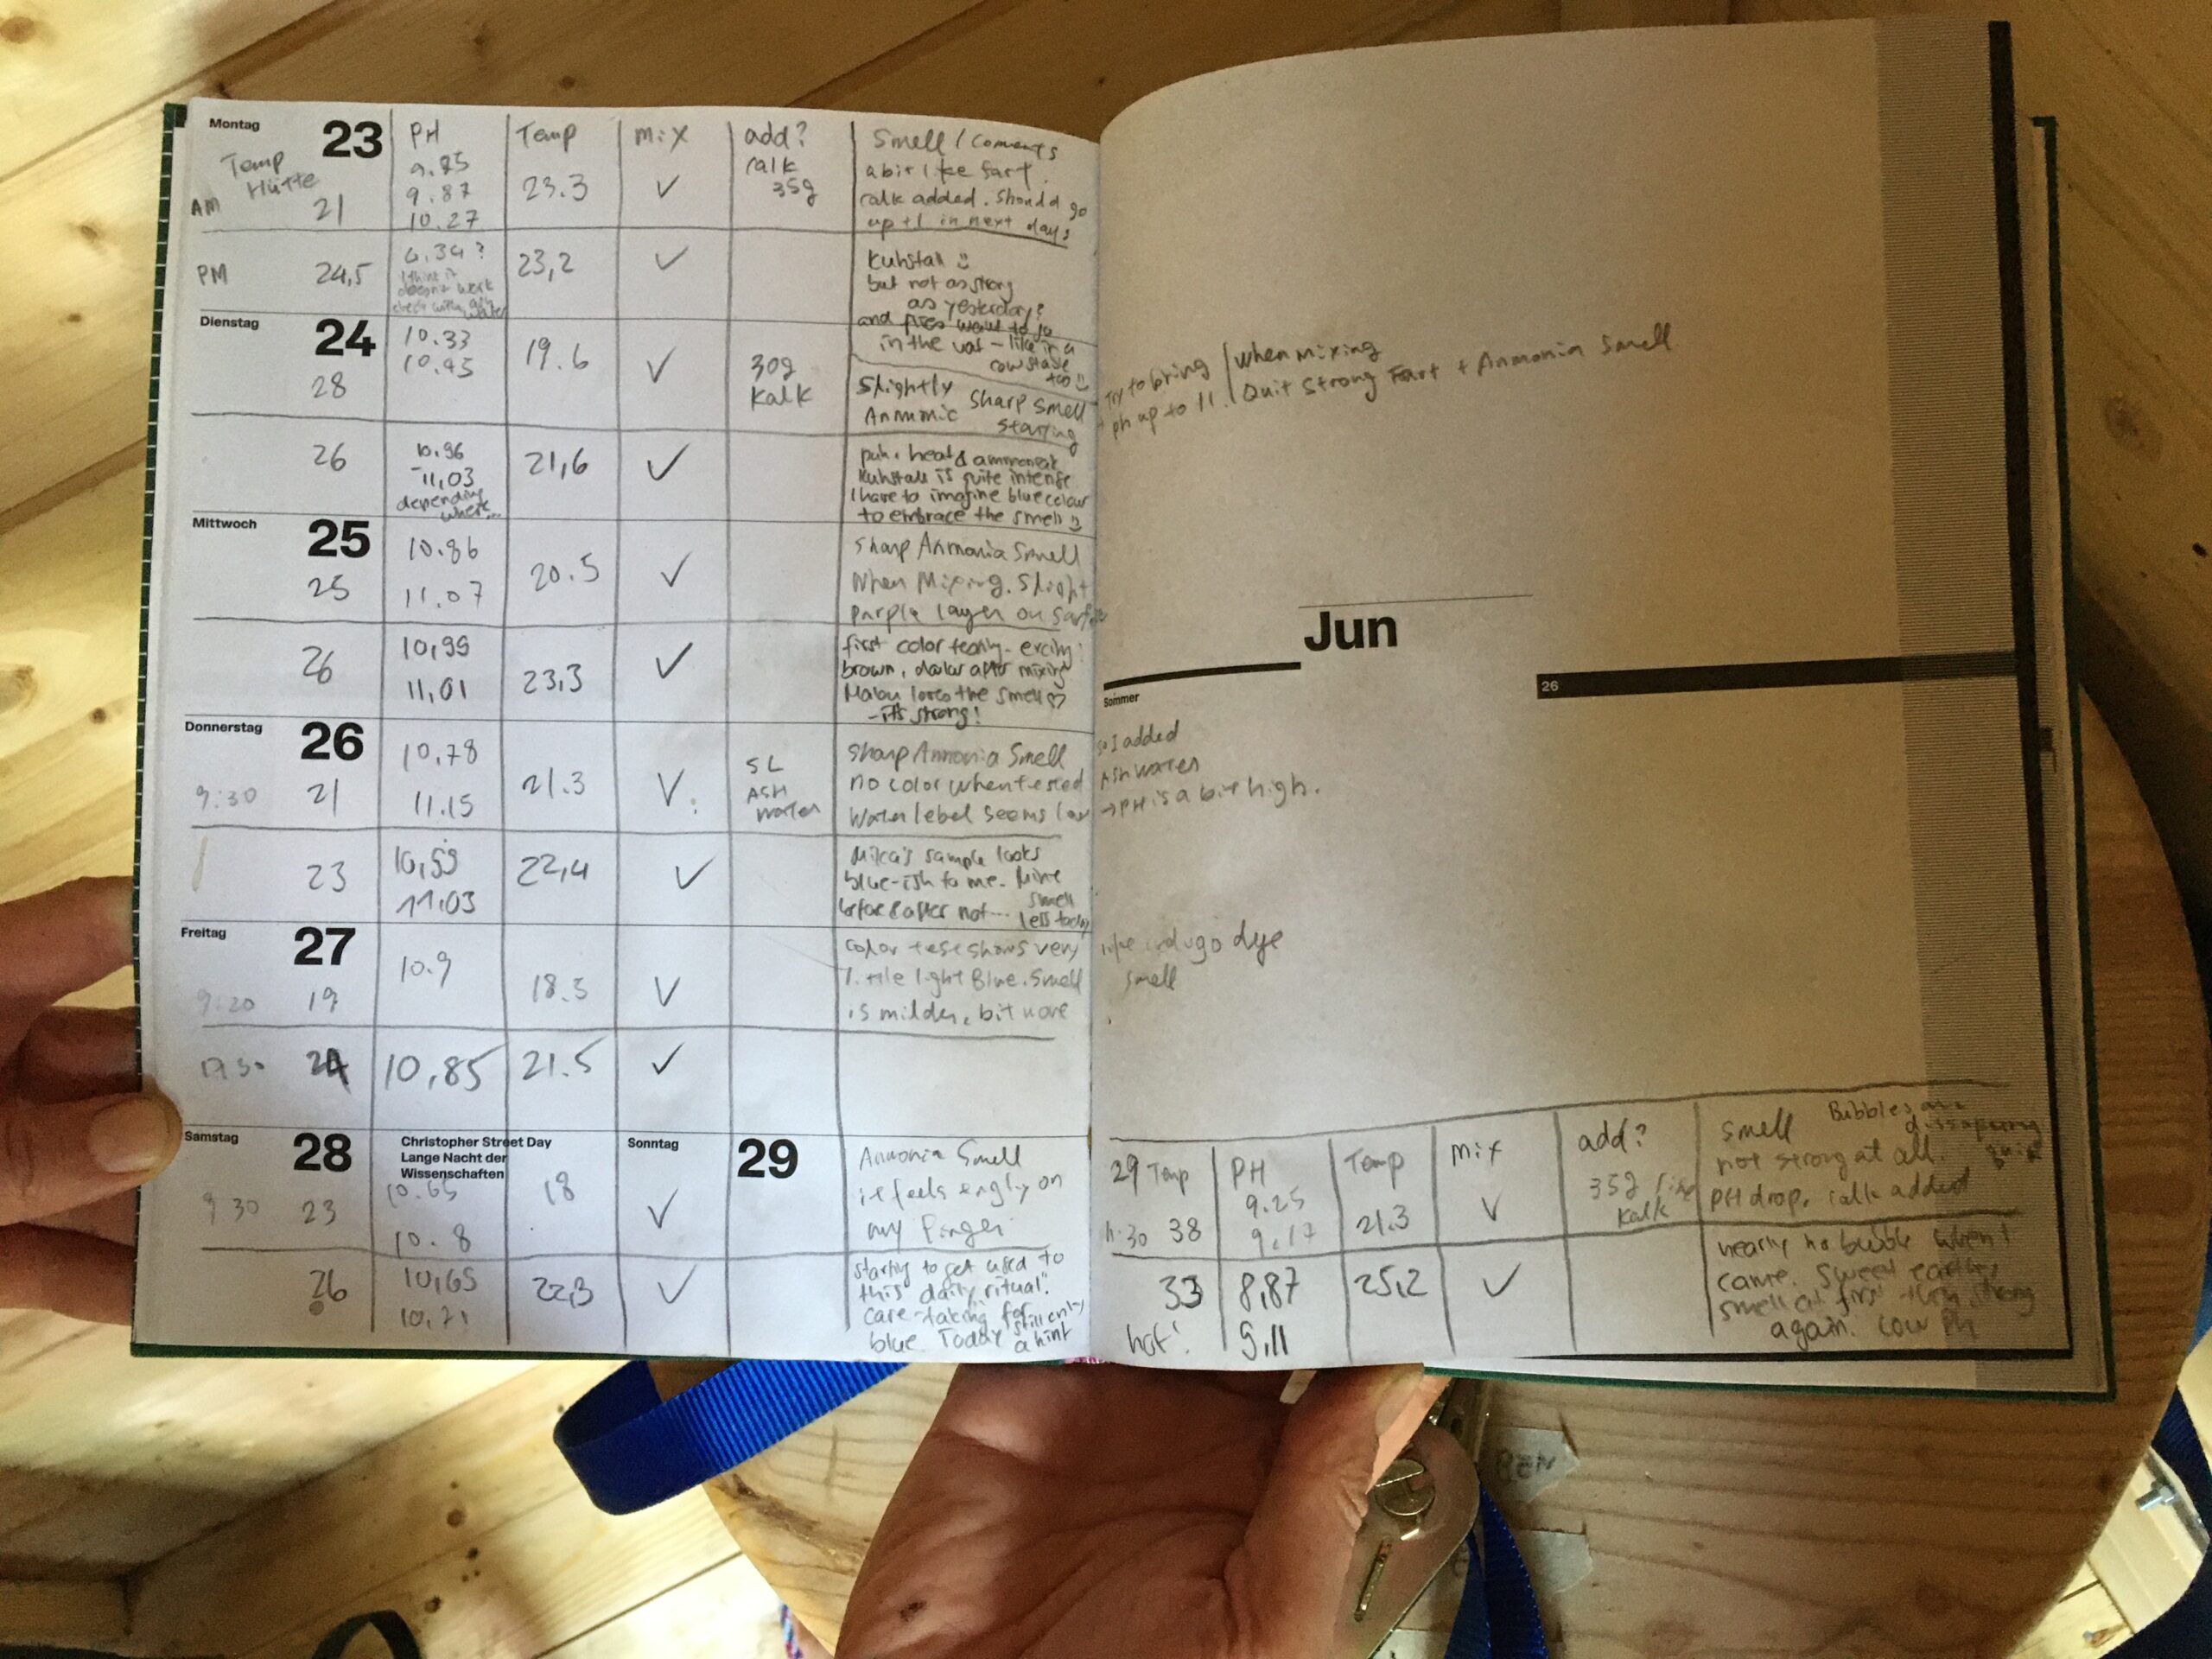 Montag 23 PH Temp mix add? Smell / Coments
Temp Hütte
9.85 kalk a bit like fart.
AM 21 9.87 23.3 ✓ 35g kalk added. Should go
10.27 up +1 in next days
PM 24,5 6.34? 23,2 ✓ Kuhstall
I think it doesn't work
check with ash water
but not as strong
as yesterday?
and flies want to go
in the vat – like in a
cow stable
too
Dienstag 24 10.33 19.6 ✓ 30g Kalk
28 10.45
Slightly Ammonic Sharp Smell starting
Try to bring
ph up to 11.
When Mixing
Quit Strong Fart + Anmonia Smell
26 10.96 21,6 ✓
-11,03
depending
where...
puh. heat & ammoniak
Kuhstall is quite intense
I have to imagine blue colour
to embrace the smell
Mittwoch 25 10.86 20.5 ✓ Sharp Anmonia Smell
25 11.07 When Mixing. Slight
purple layer on
26 10,99 23,3 ✓ first color
11,01 brown, after mixing
loves the smell ♡
- it's strong!
Donnerstag 26 10.78 21.3 ✓ 5L ASH water
9:30 21 11.15
Sharp Anmonia Smell
no color when tested
Water lebel seems low
so I added
ASH water
→ PH is a bit high.
23 22,4 ✓
11.03
sample looks
blue-ish to me. Mine
before & after not... smell
less today
Freitag 27 10.9 18.5 ✓
9:20 19
color test shows very
little light Blue. Smell
is milder, bit more
like indugo dye
smell
10,85 21.5 ✓
Samstag 28 Christopher Street Day Sonntag 29
Lange Nacht der
Wissenschaften
9 30 23 10.65 18 ✓
10.8
Anmonia Smell
it feels on
my finger
26 10,65 22,3 ✓
10,71
starting to get used to
this daily ritual
care-taking for
blue. Today still only
a hint
Jun
Sommer 26
29 Temp PH Temp Mix add? Smell Bubbles are
11:30 38 9.25 21.3 ✓ 35g Kalk
9.17
not strong at all.
PH drop. kalk added
33 8,87 25,2 ✓
hot! 9,11
nearly no bubble when I
came. Sweet earthy
smell at first then strong
again. Low PH